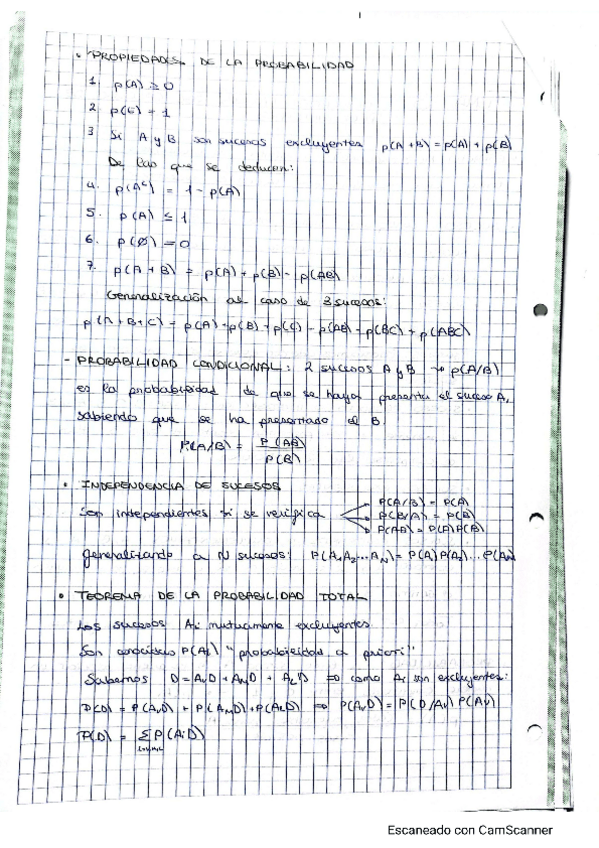 • PROPIEDADES DE LA PROBABILIDAD
1. p(A) ≥ 0
2. p(E) = 1
3 Si A y B son sucesos excluyentes p(A+B) = p(A) + p(B)
De las que se deducen:
4. p(Aᶜ) = 1 - p(A)
5. p(A) ≤ 1
6. p(Ø) = 0
7. p(A + B) = p(A) + p(B) - p(AB)
Generalización al caso de 3 sucesos:
p(A+B+C) = p(A) + p(B) + p(C) - p(AB) - p(BC) + p(ABC)
- PROBABILIDAD CONDICIONAL: 2 sucesos A y B → p(A/B)
es la probabilidad de que se haya el suceso A,
sabiendo que se ha presentado el B.
P(A/B) = P(AB) / P(B)
• INDEPENDENCIA DE SUCESOS
Son independientes si se verifica
P(A/B) = P(A)
P(B/A) = P(B)
P(AB) = P(A)P(B)
generalizando a N sucesos: P(A₁A₂...A_N) = P(A₁)P(A₂)...P(A_N)
• TEOREMA DE LA PROBABILIDAD TOTAL
Los sucesos Ai mutuamente excluyentes
Son conocidas P(Ai) "probabilidad a priori"
Sabemos D = AᵥD + A_MD + A_LD ⇒ como Ai son excluyentes:
P(D) = P(AᵥD) + P(A_MD) + P(A_LD) ⇒ P(AᵥD) = P(D/Aᵥ) P(Aᵥ)
P(D) = Σ P(AiD)
Escaneado con CamScanner